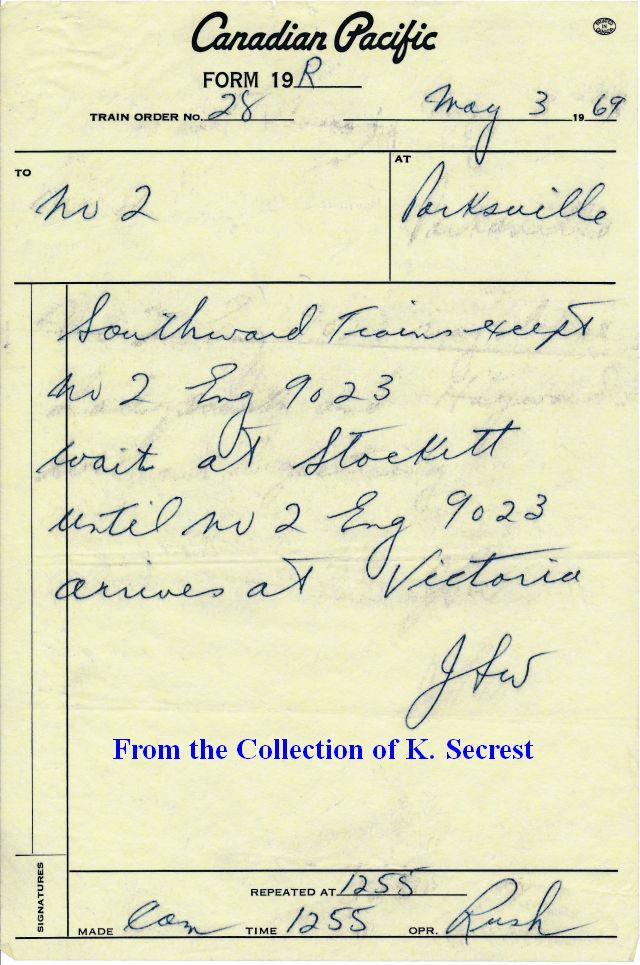 Canadian Pacific
PRINTED IN CANADA
FORM 19 R
TRAIN ORDER NO. 28 May 3 19 69
TO No 2 AT Parksville
Southward Trains except
No 2 Eng 9023
wait at Stockett
until No 2 Eng 9023
arrives at Victoria
From the Collection of K. Secrest
SIGNATURES
REPEATED AT 1255
MADE Com TIME 1255 OPR. Rush